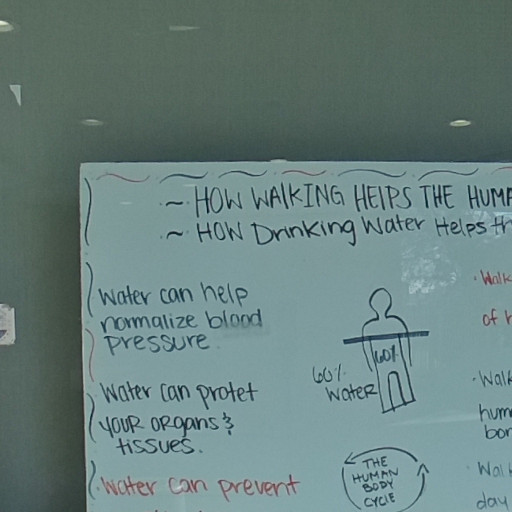 ~ HOW WALKING HELPS THE HUMA
~ HOW Drinking Water Helps th
Water can help
normalize blood
pressure.
Water can protet
YOUR ORGANS &
tissues.
Water can prevent
60%
60%
Water
THE
HUMAN
BODY
CYCLE
Walk
of h
Walk
huma
bon
Walk
day